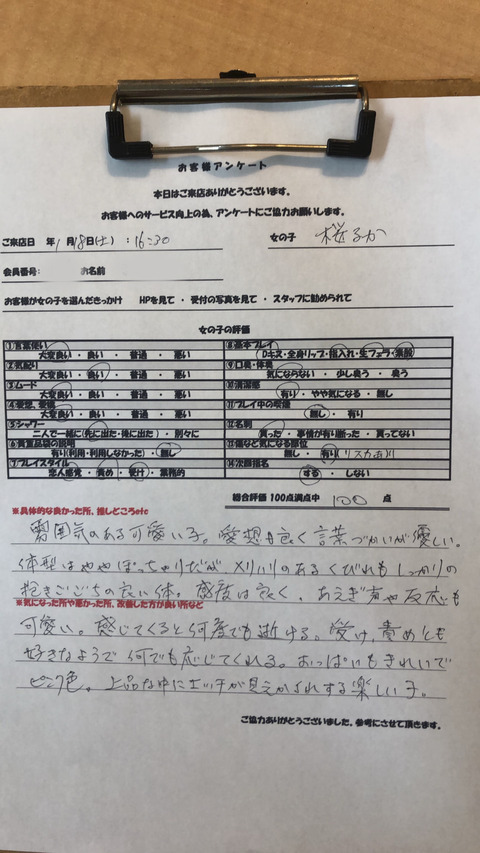 お客様アンケート
本日はご来店ありがとうございます。
お客様へのサービス向上の為、アンケートにご協力お願いします。
ご来店日 年 1月18日(土) : 16:30 女の子 桜るか
会員番号: お名前
お客様が女の子を選んだきっかけ HPを見て ・ 受付の写真を見て ・ スタッフに勧められて
女の子の評価
①言葉使い
大変良い ・ 良い ・ 普通 ・ 悪い
②気配り
大変良い ・ 良い ・ 普通 ・ 悪い
③ムード
大変良い ・ 良い ・ 普通 ・ 悪い
④愛想、表情
大変良い ・ 良い ・ 普通 ・ 悪い
⑤シャワー
二人で一緒に(先に出た・後に出た) ・ 別々に
⑥貴重品袋の説明
有り(利用・利用しなかった) ・ 無し
⑦プレイスタイル
恋人感覚 ・ 責め ・ 受け ・ 業務的
⑧基本プレイ
(Dキス・全身リップ・指入れ・生フェラ・素股)
⑨口臭・体臭
気にならない ・ 少し臭う ・ 臭う
⑩清潔感
有り ・ やや気になる ・ 無し
⑪プレイ中の喫煙
無し ・ 有り
⑫名刺
貰った ・ 事情が有り断った ・ 貰ってない
⑬傷など気になる部位
無し ・ 有り(リスカあり)
⑭次回指名
する ・ しない
総合評価 100点満点中 100 点
※具体的な良かった所、推しどころetc
雰囲気のある可愛い子。愛想も良く言葉づかいが優しい。
体型はややぽっちゃりだが、メリハリのあるくびれもしっかりの
抱きごごちの良い体。感度は良く、あえぎ声や反応も
※気になった所や悪かった所、改善した方が良い所など
可愛い。感じてくると何度でも逝ける。受け、責めとも
好きなようで何でも応じてくれる。おっぱいもきれいで
ピンク色。上品な中にエッチが見えかくれする楽しい子。
ご協力ありがとうございました。参考にさせて頂きます。